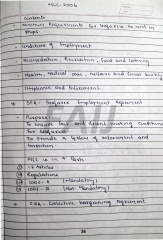 MLC-2006
Contents
Minimum Requirements for seafarer to work on
Ships
Conditions of Employment
Accomodation, Recreation, Food and Catering
Health, Medical care, welfare and Social Security
Compliance and Enforcement
SEA - Seafarer Employment Agreement
Purpose:-
To ensure
working conditions
for Seafarer
To provide a System of
and
Inspection
MLC is in 4 Parts
Articles
Regulations
Code - A (Mandatory)
Code - B (Not Mandatory)
CBA - Collective bargaining Agreement